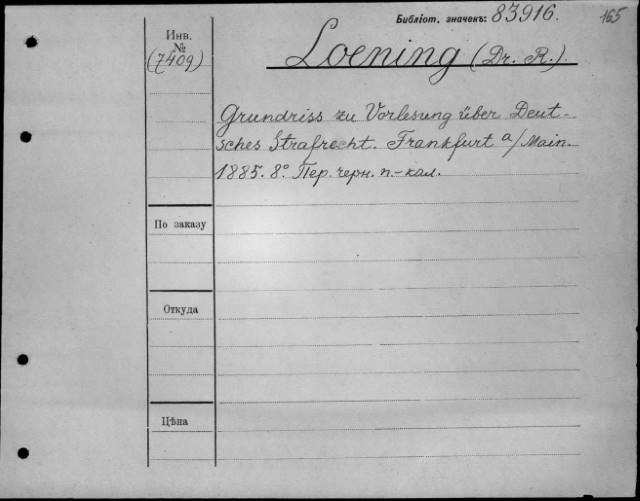 Библіот. значекъ: 83916.
165
Инв.
№
(7409)
Loening (Dr. R.).
Grundriss zu Vorlesung über Deut-
sches Strafrecht. Frankfurt a/Main.
1885. 8° Пер. черн. п.-кал.
По заказу
Откуда
Цѣна